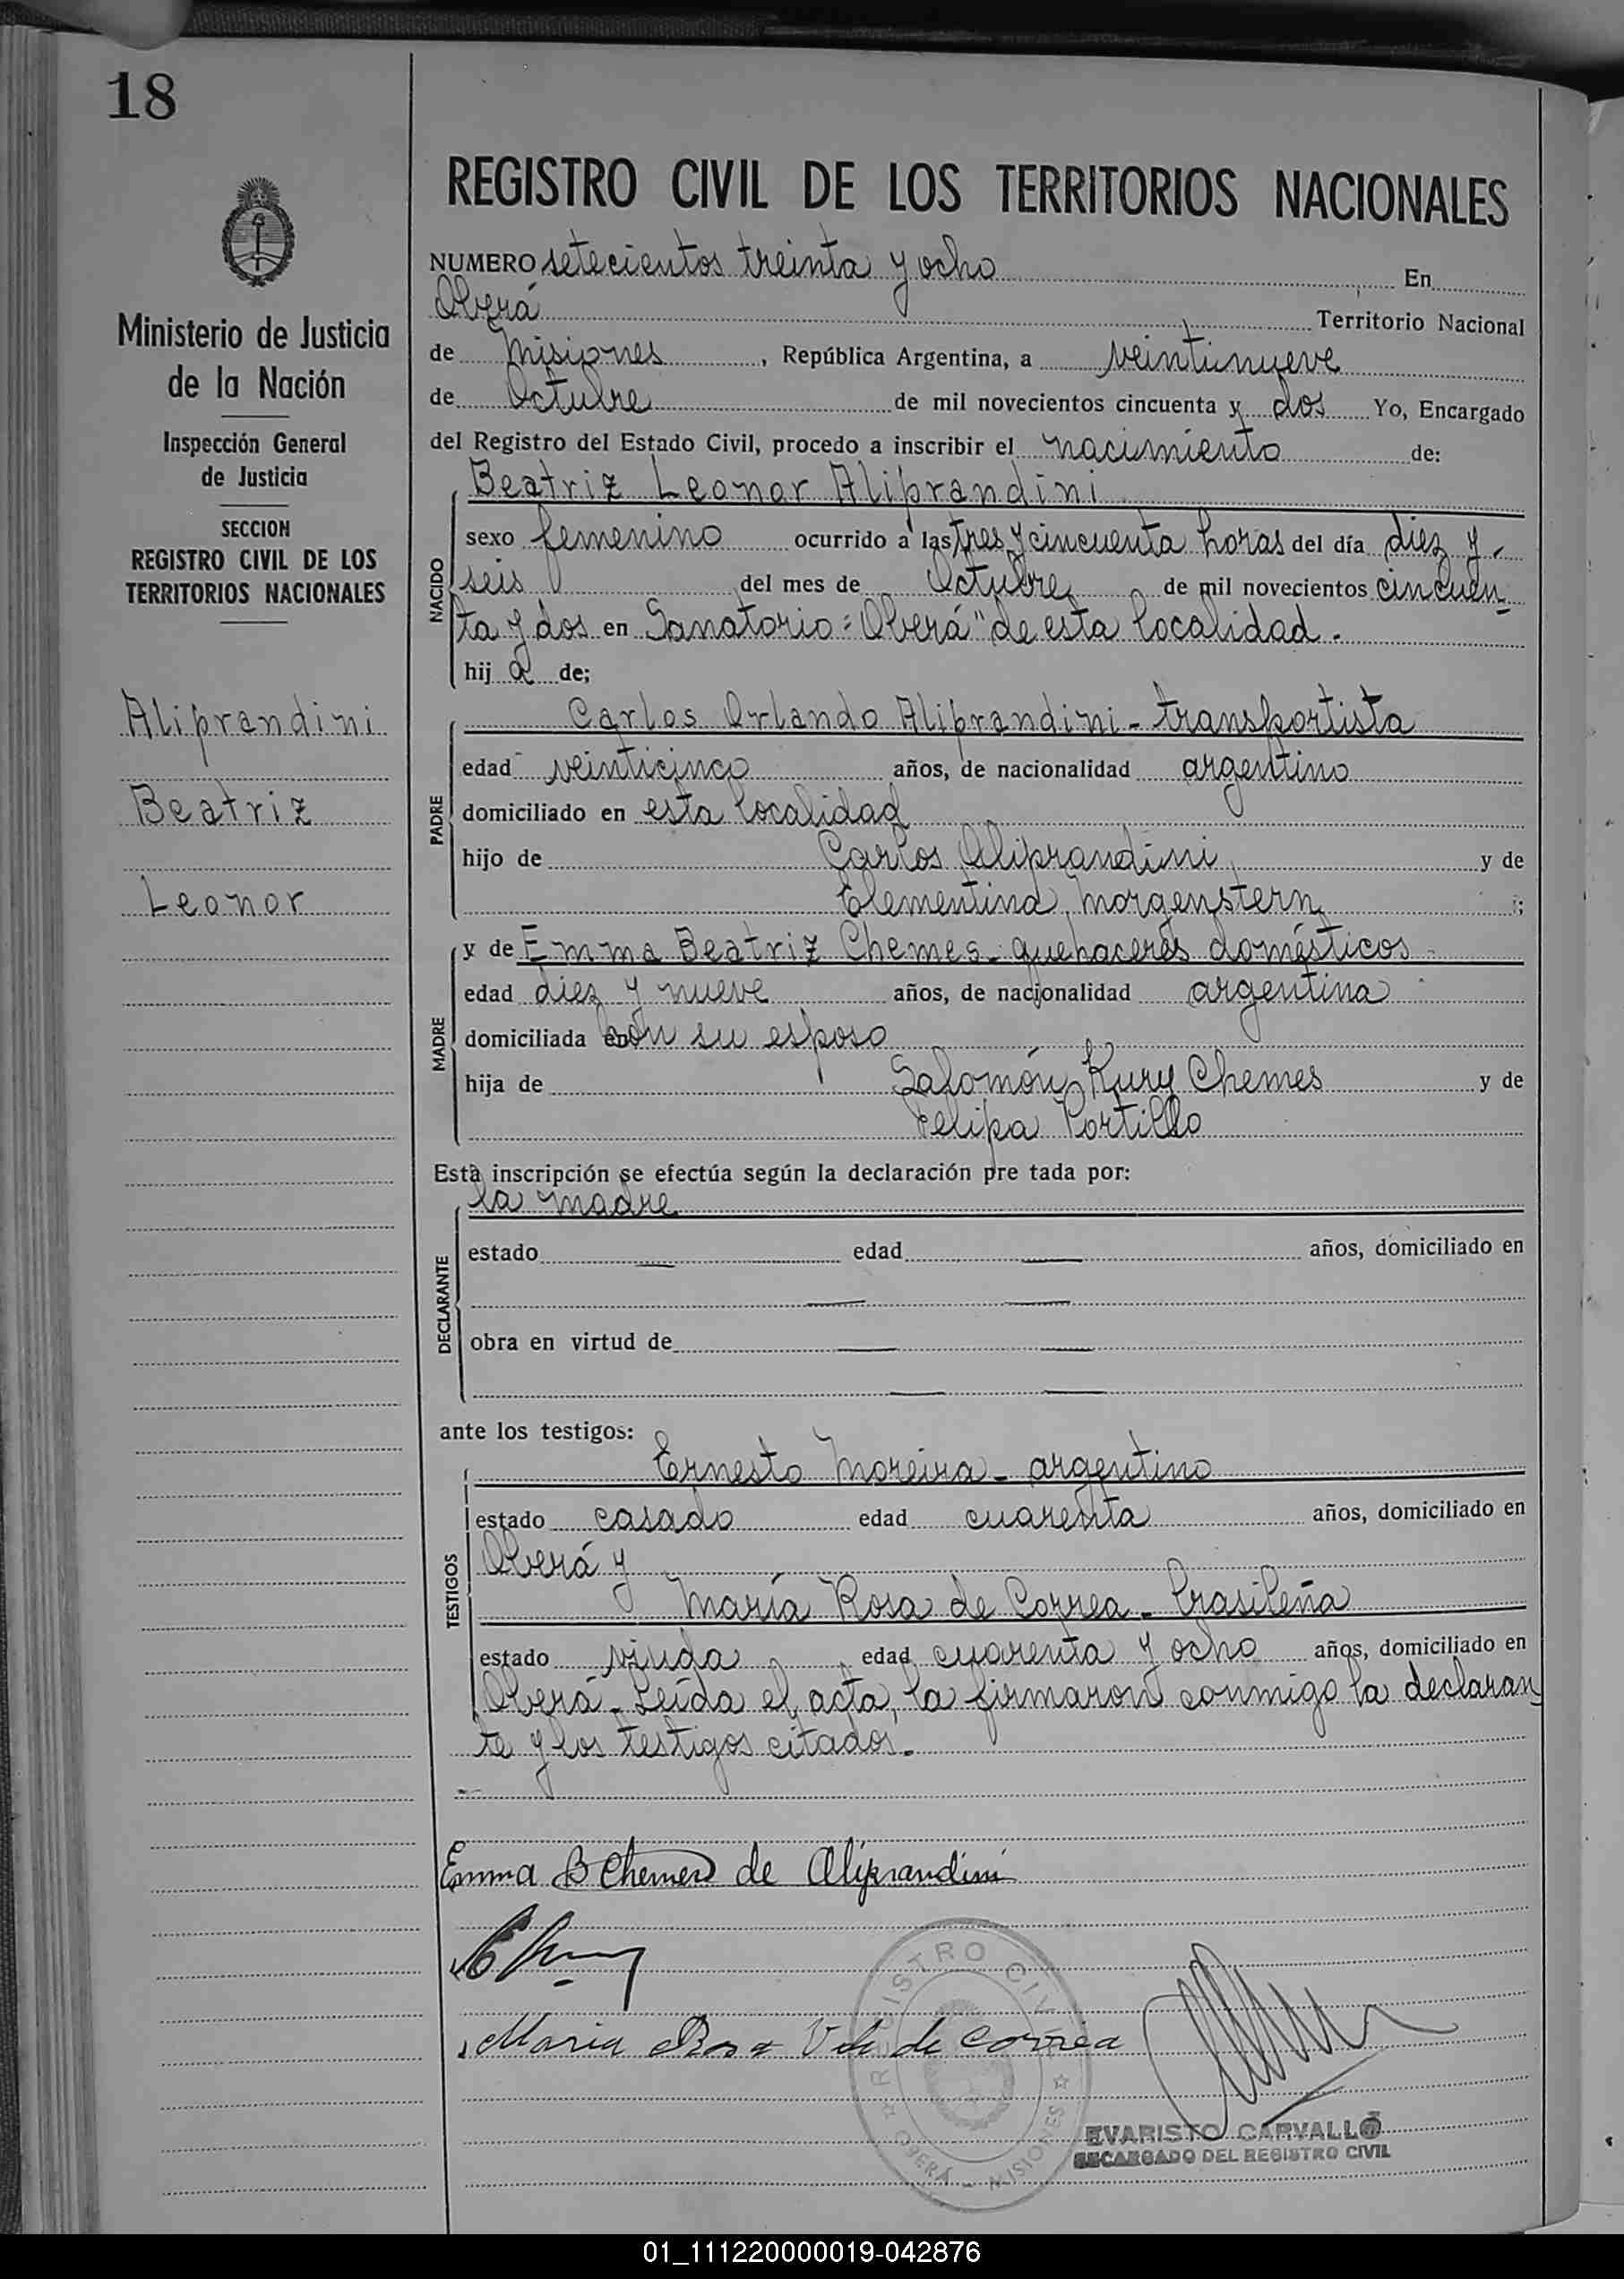 18
Ministerio de Justicia
de la Nación
Inspección General
de Justicia
SECCION
REGISTRO CIVIL DE LOS
TERRITORIOS NACIONALES
Aliprandini
Beatriz
Leonor
REGISTRO CIVIL DE LOS TERRITORIOS NACIONALES
NUMERO setecientos treinta y ocho En
Oberá Territorio Nacional
de Misiones, República Argentina, a veintinueve
de Octubre de mil novecientos cincuenta y dos Yo, Encargado
del Registro del Estado Civil, procedo a inscribir el nacimiento de:
Beatriz Leonor Aliprandini
NACIDO
sexo femenino ocurrido a las tres y cincuenta horas del día diez y
seis del mes de Octubre de mil novecientos cincuen-
ta y dos en Sanatorio "Oberá" de esta localidad.
hij a de;
PADRE
Carlos Orlando Aliprandini - transportista
edad veinticinco años, de nacionalidad argentino
domiciliado en esta localidad
hijo de Carlos Aliprandini y de
Clementina Morgenstern ;
MADRE
y de Emma Beatriz Chemes - quehaceres domésticos
edad diez y nueve años, de nacionalidad argentina
domiciliada con su esposo
hija de Salomón Kury Chemes y de
Felipa Portillo
Esta inscripción se efectúa según la declaración pre tada por:
la madre
DECLARANTE
estado edad años, domiciliado en
obra en virtud de
ante los testigos:
TESTIGOS
Ernesto Moreira - argentino
estado casado edad cuarenta años, domiciliado en
Oberá y
María Rosa de Correa - brasileña
estado viuda edad cuarenta y ocho años, domiciliado en
Oberá - Leída el acta, la firmaron conmigo la declaran
te y los testigos citados.
Emma B Chemes de Aliprandini
Maria Rosa Vda de Correa
REGISTRO CIVIL
OBERÁ - MISIONES
EVARISTO CARVALLO
ENCARGADO DEL REGISTRO CIVIL
01_111220000019-042876